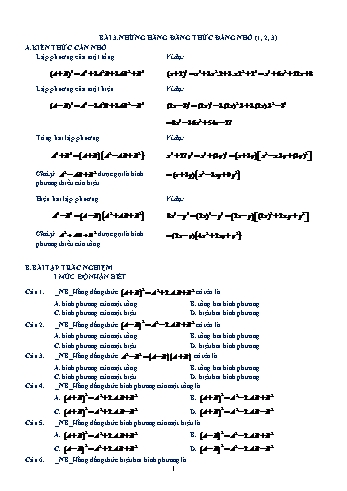 BÀI 3.NHỮNG HẰNG ĐẲNG THỨC ĐÁNG NHỚ (1, 2, 3)
A. KIẾN THỨC CẦN NHỚ
Lập phương của một tổng Ví dụ:
(A+B)³ = A³+3A²B+3AB²+B³ (x+2)³ = x³+3x².2+3.x.2²+2³ = x³+6x²+12x+8
Lập phương của một hiệu Ví dụ:
(A−B)³ = A³−3A²B+3AB²−B³ (2x−3)³ = (2x)³−3.(2x)².3+3.(2x).3²−3³
=8x³−36x²+54x−27
Tổng hai lập phương Ví dụ:
A³+B³ = (A+B)(A²−AB+B²) x³+27y³ = x³+(3y)³ = (x+3y)[x²−x.3y+(3y)²]
Chú ý: A²−AB+B² được gọi là bình = (x+3y)(x²−3xy+9y²)
phương thiếu của hiệu
Hiệu hai lập phương Ví dụ:
A³−B³ = (A−B)(A²+AB+B²) 8x³−y³ = (2x)³−y³ = (2x−y)[(2x)²+2xy+y²]
Chú ý: A²+AB+B² được gọi là bình = (2x−y)(4x²+2xy+y²)
phương thiếu của tổng
B. BÀI TẬP TRẮC NGHIỆM
I MỨC ĐỘ NHẬN BIẾT
Câu 1. _NB_ Hằng đẳng thức (A+B)² = A²+2AB+B² có tên là
A. bình phương của một tổng B. tổng hai bình phương
C. bình phương của một hiệu D. hiệu hai bình phương
Câu 2. _NB_ Hằng đẳng thức (A−B)² = A²−2AB+B² có tên là
A. bình phương của một tổng B. tổng hai bình phương
C. bình phương của một hiệu D. hiệu hai bình phương
Câu 3. _NB_ Hằng đẳng thức A²−B² = (A−B)(A+B) có tên là
A. bình phương của một tổng B. tổng hai bình phương
C. bình phương của một hiệu D. hiệu hai bình phương
Câu 4. _NB_ Hằng đẳng thức bình phương của một tổng là
A. (A+B)² = A²+2AB+B² B. (A+B)² = A²−2AB+B²
C. (A+B)² = A²+2AB−B² D. (A+B)² = A²−2AB−B²
Câu 5. _NB_ Hằng đẳng thức bình phương của một hiệu là
A. (A+B)² = A²+2AB+B² B. (A−B)² = A²−2AB+B²
C. (A−B)² = A²+2AB−B² D. (A−B)² = A²−2AB−B²
Câu 6. _NB_ Hằng đẳng thức hiệu hai bình phương là
1